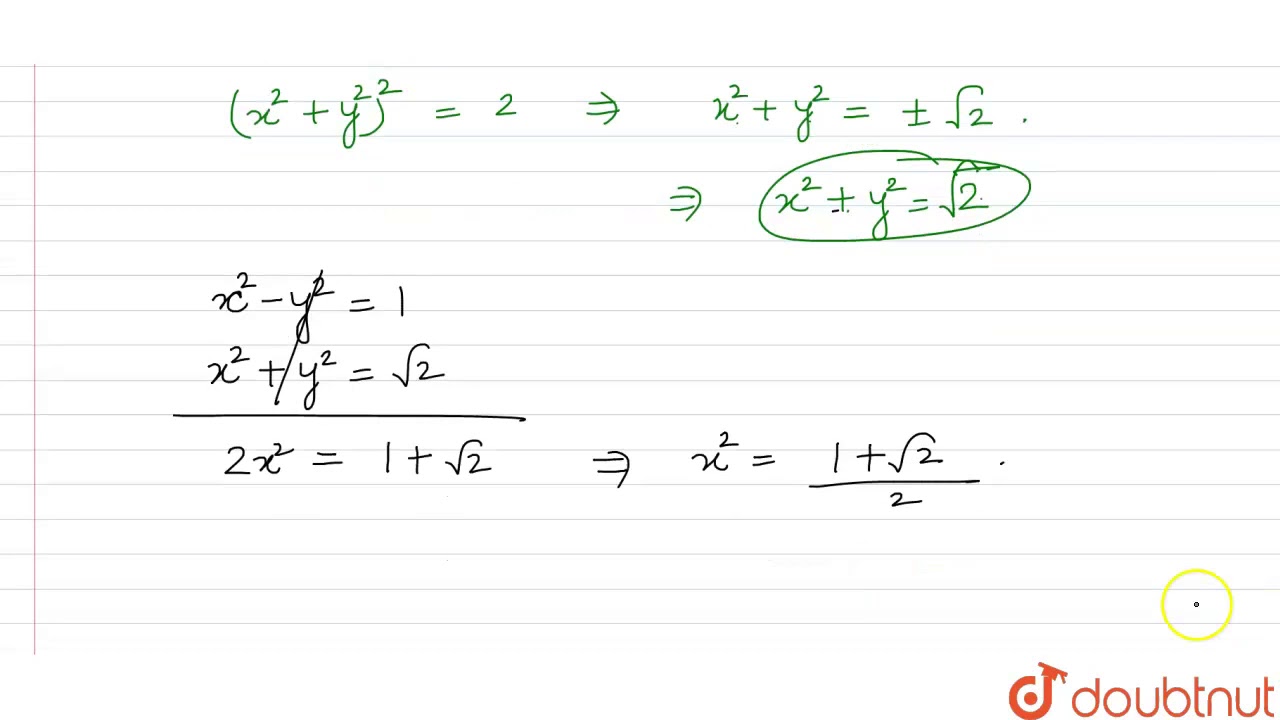 (x² + y²)² = 2 ⇒ x² + y² = ± √2 .
⇒ x² + y² = √2
x² − y² = 1
x² + y² = √2
2x² = 1 + √2 ⇒ x² = (1 + √2)/2 .
doubtnut